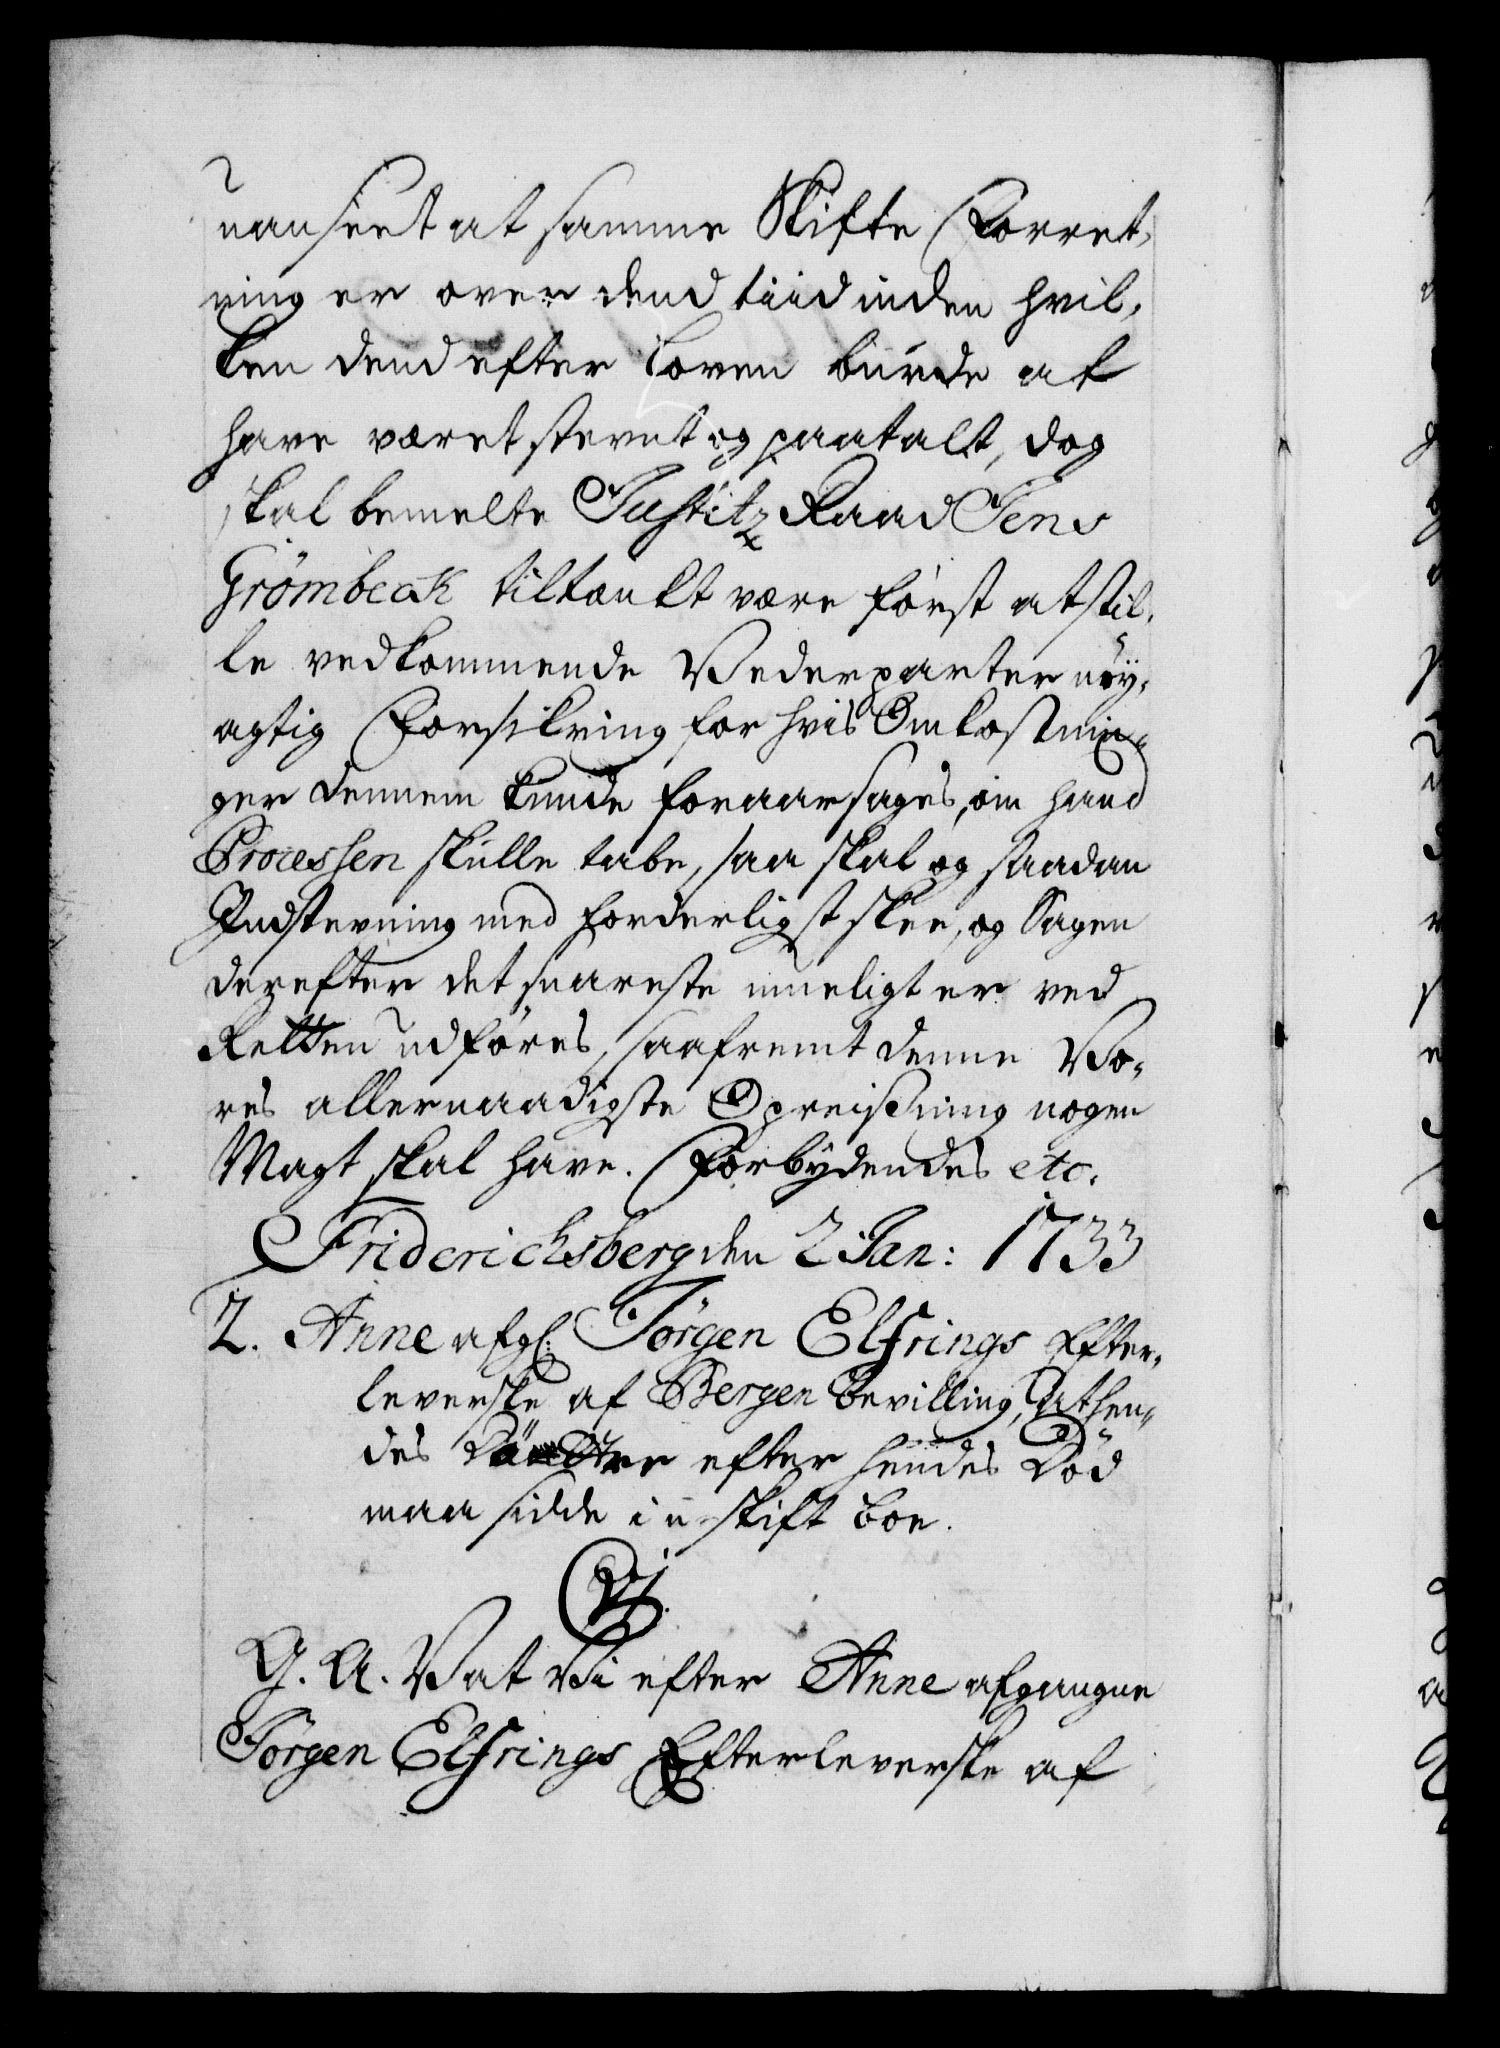 uanseet at samme Skifte Forret-
ning er over dend tiid inden hvil-
ken dend efter Loven burde at
have været stevnt og paatalt, dog
skal bemelte Justitz Raad Jens
Grömbeck tiltænkt være först at stil-
le vedkommende Vederparter nöy-
agtig Forsikring for hvis Omkostnin-
ger dennem kunde foraarsages, om hand
Processen skulle tabe, saa skal og saadan
Indstevning med forderligst skee, og Sagen
derefter det snareste mueligt er ved
Retten udföres, saafremt denne Vo-
res allernaadigste Opreisning nogen
Magt skal have. Forbydendes etc.
Friderichsberg den 2 Jan: 1733
2. Anne afg: Jörgen Elfrings Efter-
leverske af Bergen bevilling, at hen-
des efter hendes Död
maa sidde i uskift boe.
C. 6.
G. A. V at Vi efter Anne afgangne
Jörgen Elfrings Efterleverske af